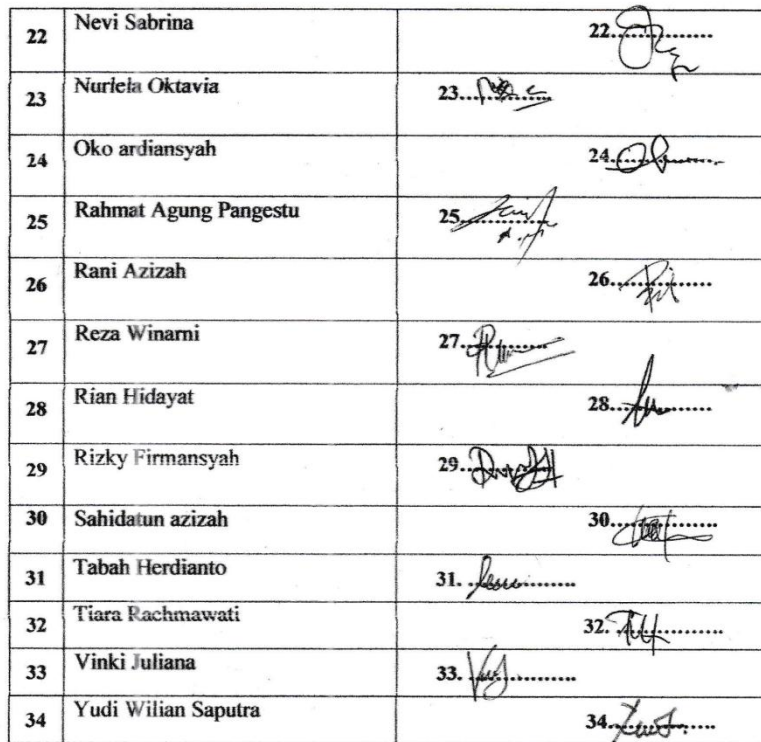 22 Nevi Sabrina 22..............
23 Nurlela Oktavia 23..............
24 Oko ardiansyah 24..............
25 Rahmat Agung Pangestu 25..............
26 Rani Azizah 26..............
27 Reza Winarni 27..............
28 Rian Hidayat 28..............
29 Rizky Firmansyah 29..............
30 Sahidatun azizah 30..............
31 Tabah Herdianto 31. ..............
32 Tiara Rachmawati 32..............
33 Vinki Juliana 33..............
34 Yudi Wilian Saputra 34..............